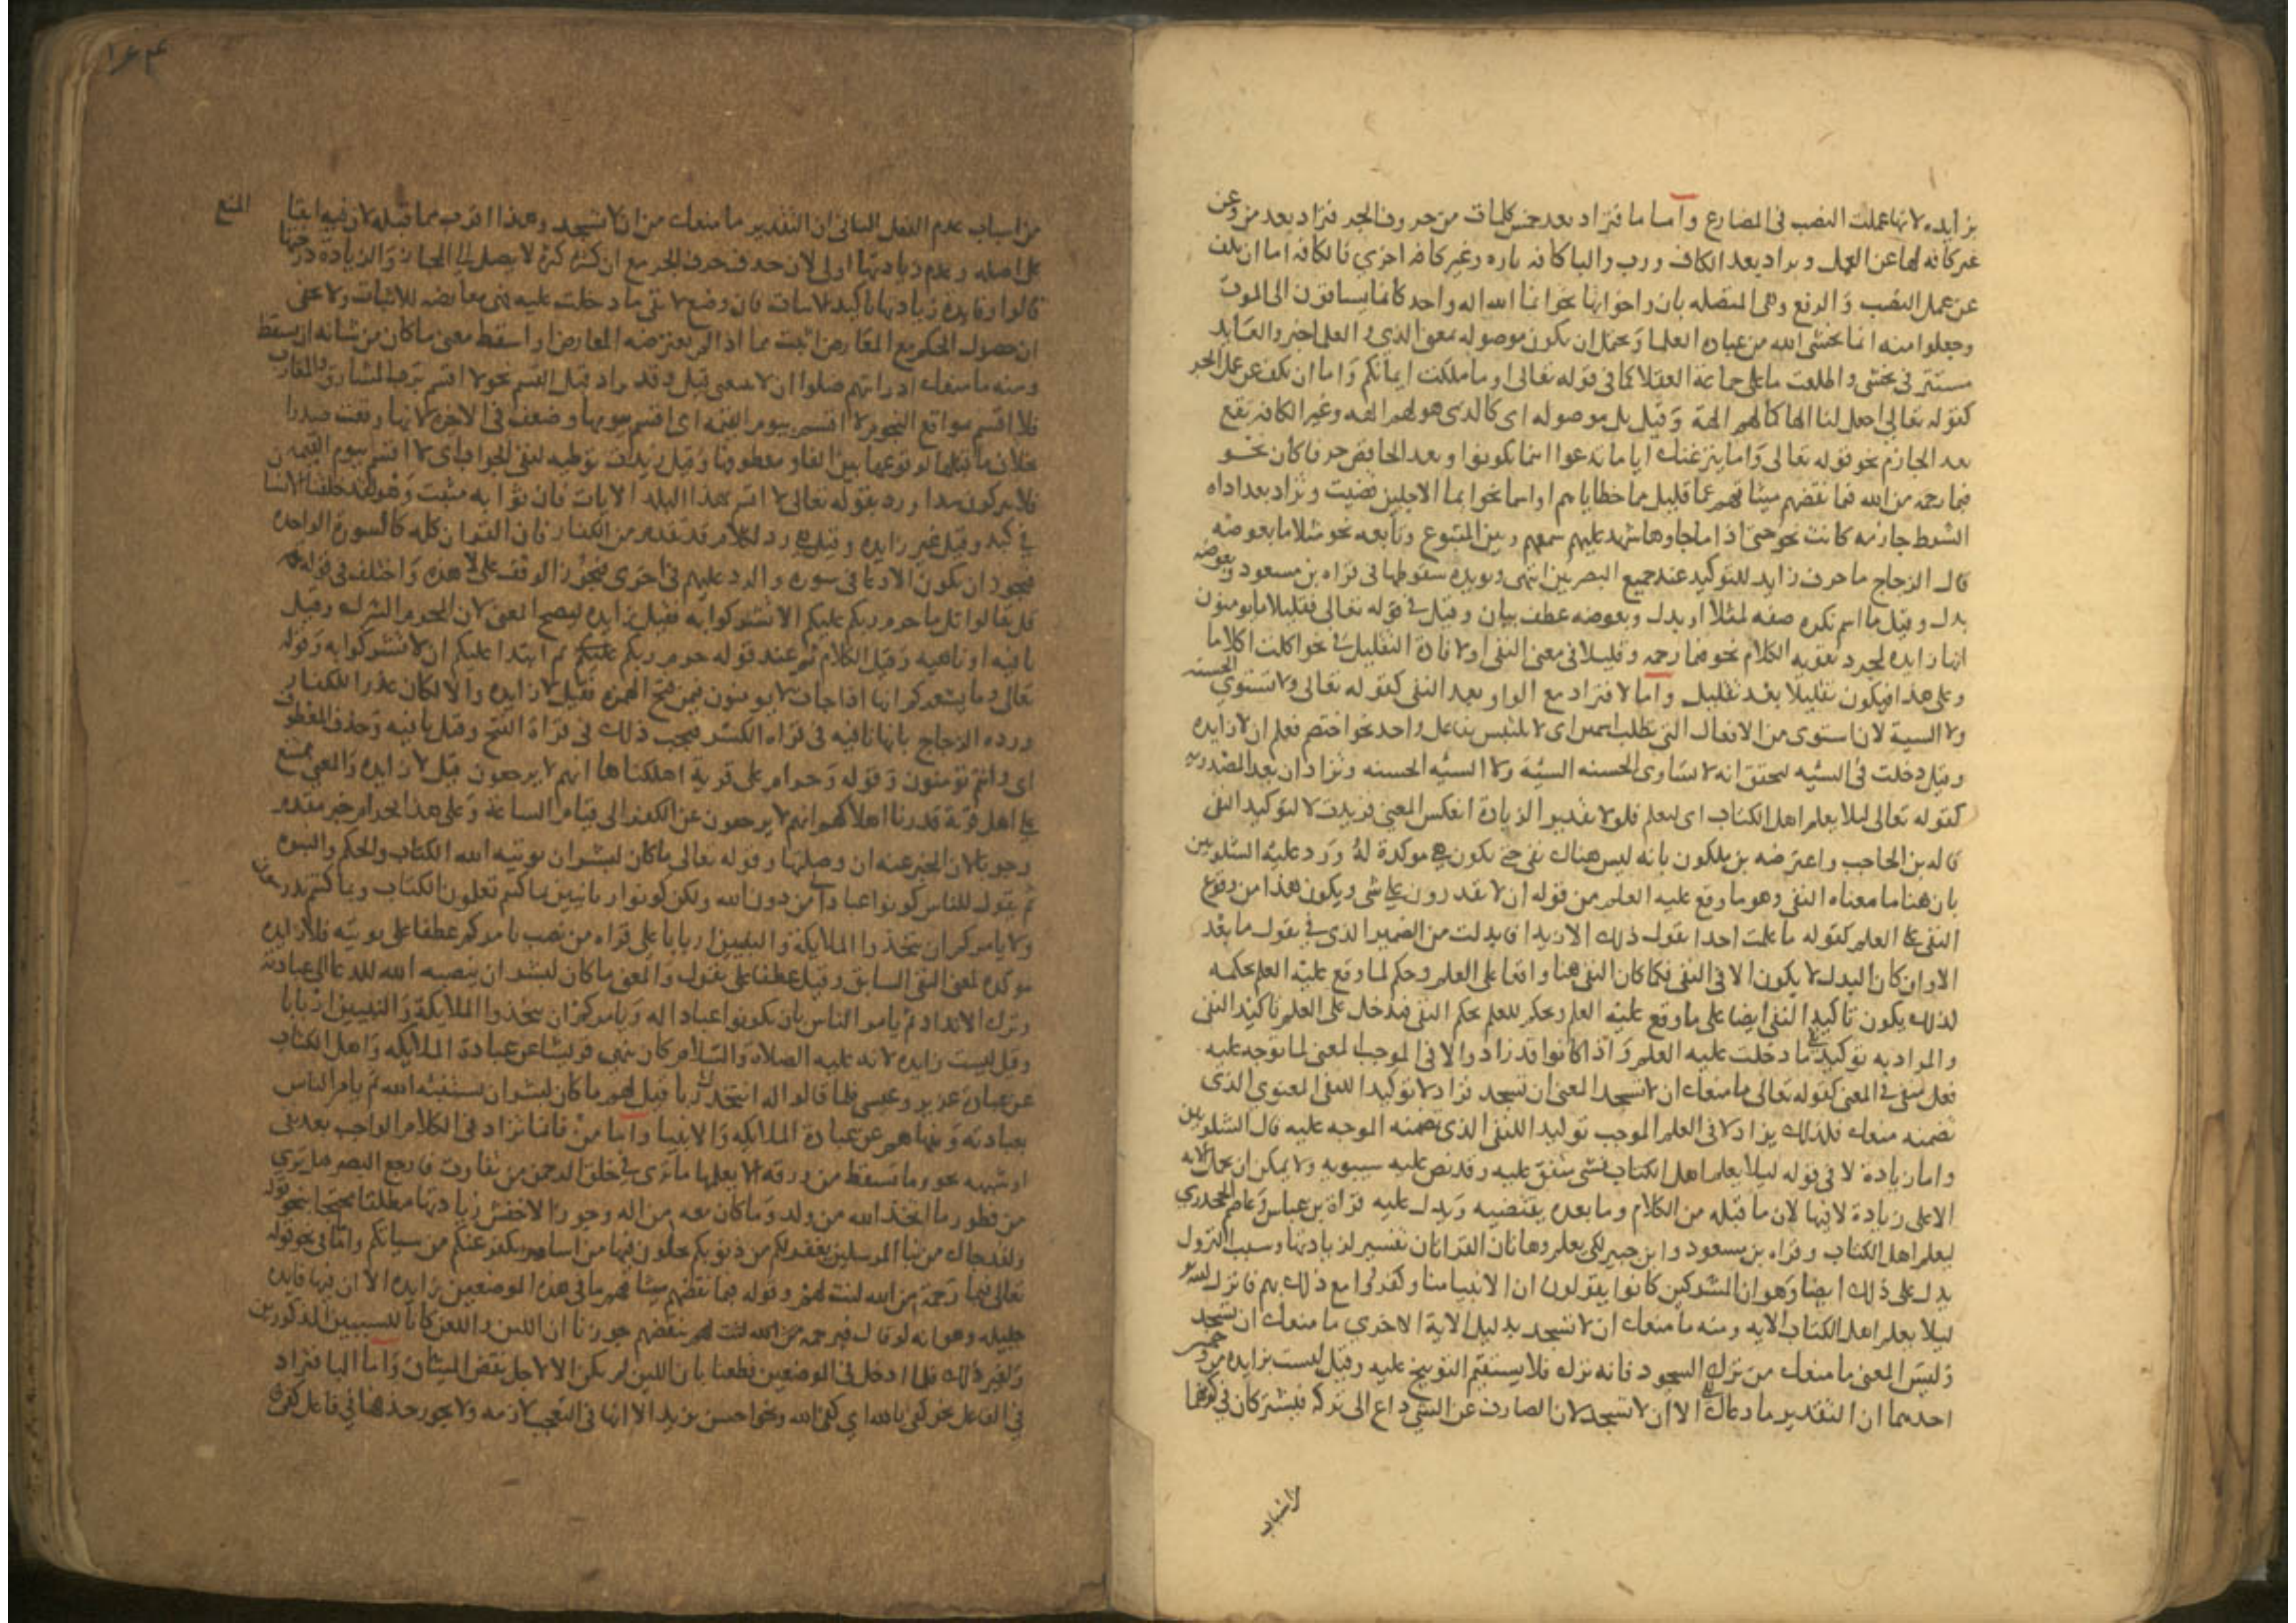 بزايده لانها عملت النصب فى المضارع واما ما فتزاد بعد خمس كلمات من حروف الجر فتزاد بعد من وعن
غير كافه لها عن العمل وتزاد بعد الكاف ورب والبا كافه تاره وغير كافه اخرى فالكافه اما ان تكف
عن عمل النصب والرفع وهى المتصله بان واخواتها نحو انما الله اله واحد كانما يساقون الى الموت
وجعلوا منه انما يخشى الله من عباده العلما ويحتمل ان يكون موصوله بمعنى الذى والعلما خبر والعايد
مستتر فى يخشى واطلقت ما على جماعة العقلا كما فى قوله تعالى او ما ملكت ايمانكم واما ان تكف عن عمل الجر
كقوله تعالى اجعل لنا الها كما لهم الهة وقيل بل موصوله اى كالذى هو لهم الهه وغير الكافه تقع
بعد الجازم نحو قوله تعالى واما ينزغنك ايا ما تدعوا اينما تكونوا وبعد الخافض حرفا كان نحو
فبما رحمه من الله فبما نقضهم ميثاقهم عما قليل مما خطاياهم او اسما نحو ايما الاجلين قضيت وتزاد بعد اداه
الشرط جازمه كانت نحو حتى اذا ما جاوها شهد عليهم سمعهم وبين المتبوع وتابعه نحو مثلا ما بعوضه
قال الزجاج ما حرف زايد للتوكيد عند جميع البصريين انتهى ويويده سقوطها فى قراه بن مسعود وبعوضه
بدل وقيل ما اسم نكره صفه لمثلا او بدل وبعوضه عطف بيان وقيل فى قوله تعالى فقليلا ما يومنون
انها زايده لمجرد تقويه الكلام نحو فبما رحمه وقليلا فى معنى النفى او لافادة التقليل كما فى نحو اكلت اكلا ما
وعلى هذا فيكون تقليلا بعد تقليل واما لا فتزاد مع الواو بعد النفى كقوله تعالى ولا تستوى الحسنه
ولا السيه لان استوى من الافعال التى تطلب اسمين اى لا يلتبس بفاعل واحد نحو اختصم فعلم ان لا زايده
وقيل دخلت فى السيه لتحقق انه لا تساوى الحسنه السيه ولا السيه الحسنه وتزاد ان بعد المصدريه
كقوله تعالى ليلا يعلم اهل الكتاب اى ليعلم فلولا تقدير الزيادة انعكس المعنى فزيدت لا لتوكيد النفى
قاله بن الحاجب واعترضه بن ملكون بانه ليس هناك نفى حتى تكون هى موكدة له ورد عليه الشلوبين
بان هنا ما معناه النفى وهو ما وقع عليه العلم من قوله ان لا يقدرون على شى ويكون هذا من وقوع
النفى على العلم كقوله ما علمت احدا يقول ذلك الا زيدا فابدلت من الضمير الذى فى يقول ما بعد
الا وان كان البدل لا يكون الا فى النفى فكما كان النفى هنا واقعا على العلم وحكم لما وقع عليه العلم بحكمه
لذلك يكون تاكيد النفى ايضا على ما وقع عليه العلم ويحكم للعلم بحكم النفى فيدخل على العلم تاكيد النفى
والمراد به توكيد ما دخلت عليه العلم واذا كانوا قد زادوا لا فى الموجب المعنى لما توجه عليه
فعل منفى فى المعنى كقوله تعالى ما منعك ان لا تسجد المعنى ان تسجد فزاد لا توكيدا للنفى المعنوى الذى
تضمنه منعك فلذلك يزاد لا فى العلم الموجب توكيدا للنفى الذى تضمنه الموجه عليه قال الشلوبين
واما زيادة لا فى قوله ليلا يعلم اهل الكتاب فشى متفق عليه وقد نص عليه سيبويه ولا يمكن ان تحمل الايه
الا على زيادة لا فيها لان ما قبله من الكلام وما بعده يقتضيه ويدل عليه قراة بن عباس وعاصم الجحدرى
ليعلم اهل الكتاب وقراه بن مسعود وابن جبير لكى يعلم وهاتان القراتان تفسير لزيادتها وسبب النزول
يدل على ذلك ايضا وهو ان المشركين كانوا يقولون ان الانبيا منا وكفروا مع ذلك بهم فانزل الله
ليلا يعلم اهل الكتاب الايه ومنه ما منعك ان لا تسجد بدليل الاية الاخرى ما منعك ان تسجد
وليس المعنى ما منعك من ترك السجود فانه ترك فلا يستقيم التوبيخ عليه وقيل ليست بزايده من وجهين
احدهما ان التقدير ما دعاك الى ان لا تسجد لان الصارف عن الشى داع الى تركه فيشتركان فى كونهما
من اسباب
١٦٤
من اسباب عدم الفعل الثانى ان التقدير ما منعك من ان لا تسجد وهذا اقرب مما قبله لان فيه ابقا المنع
على اصله وعدم زيادتها اولى لان حذف حرف الجر مع ان كثير كثرة لا يصل الى المجاز والزيادة درجتها
قالوا وفايدة زيادتها تاكيد الاثبات فان وضع لا نفى ما دخلت عليه فهى معارضه للاثبات ولا يخفى
ان حصول الحكم مع المعارض اثبت مما اذا لم يعترضه المعارض او اسقط معنى ما كان من شانه ان يسقط
ومنه ما منعك اذ رايتهم ضلوا ان لا تتبعنى وقد تزاد قبل القسم نحو لا اقسم برب المشارق والمغارب
فلا اقسم بمواقع النجوم لا اقسم بيوم القيمه اى اقسم بيومها وضعف فى الاخره لانها وقعت صدرا
بخلاف ما قبلها لوقوعها بين الفا ومعطوفها وقيل زيدت توطيه لنفى الجواب اى لا اقسم بيوم القيمه
فلا يتركون سدا ورد بقوله تعالى لا اقسم بهذا البلد الايات فان جوابه مثبت وهو لقد خلقنا الانسان
فى كبد وقيل غير زايده وقيل هى رد لكلام قد تقدم من الكفار فان القران كله كالسورة الواحده
فيجوز ان يكون الادعا فى سوره والرد عليهم فى اخرى فيجوز الوقف على لا هذه واختلف فى قوله
قل تعالوا اتل ما حرم ربكم عليكم الا تشركوا به فقيل زايده ليصح المعنى لان المحرم الشرك وقيل
نافيه او ناهيه وقيل الكلام تم عند قوله حرم ربكم ثم ابتدا عليكم ان لا تشركوا به وقوله
تعالى وما يشعركم انها اذا جات لا يومنون فيمن فتح الهمزه فقيل لا زايده والا لكان عذرا للكفار
ورده الزجاج بانها نافيه فى قراه الكسر فيجب ذلك فى قراة الفتح وقيل نافيه وحذف المعطوف
اى وانهم يومنون وقوله وحرام على قرية اهلكناها انهم لا يرجعون قيل لا زايده والمعنى ممتنع
على اهل قرية قدرنا اهلاكهم انهم يرجعون عن الكفر الى قيام الساعة وعلى هذا فحرام خبر مقدم
وجوبا لان المخبر عنه ان وصلتها وقوله تعالى ما كان لبشر ان يوتيه الله الكتاب والحكم والنبوه
ثم يقول للناس كونوا عبادا لى من دون الله ولكن كونوا ربانيين بما كنتم تعلمون الكتاب وبما كنتم تدرسون
ولا يامركم ان تتخذوا الملايكة والنبيين اربابا على قراه من نصب يامركم عطفا على يوتيه فلا زايده
موكده لمعنى النفى السابق وقيل عطفا على يقول والمعنى ما كان لبشر ان ينصبه الله للدعا الى عبادته
وترك الانداد ثم يامر الناس بان يكونوا عبادا له ويامركم ان تتخذوا الملايكة والنبيين اربابا
وقيل ليست زايده لانه عليه الصلاة والسلام كان ينهى قريشا عن عبادة الملايكه واهل الكتاب
عن عبادة عزير وعيسى فلما قالوا له انتخذك ربا قيل لهم ما كان لبشر ان يستنبئه الله ثم يامر الناس
بعبادته وينهاهم عن عبادة الملايكه والانبيا واما من فانها تزاد فى الكلام الواجب بعد نفى
او شبهه نحو وما تسقط من ورقه الا يعلمها ما ترى فى خلق الرحمن من تفاوت فارجع البصر هل ترى
من فطور ما اتخذ الله من ولد وما كان معه من اله وجوز الاخفش زيادتها مطلقا محتجا بنحو قوله
ولقد جاك من نبا المرسلين يغفر لكم من ذنوبكم يحلون فيها من اساور يكفر عنكم من سياتكم واما فى نحو قوله
تعالى فبما رحمة من الله لنت لهم وقوله فبما نقضهم ميثاقهم ما فى هذه الموضعين زايده الا ان فيها فايده
جليله وهو انه لو قال فبرحمه من الله لنت لهم بنقضهم جوزنا ان اللين واللعن كانا للسببين المذكورين
ولغير ذلك فلما ادخل فى الموضعين قطعنا بان اللين لم يكن الا لاجل نقض الميثاق واما البا فتزاد
فى الفاعل نحو كفى بالله اى كفى الله ونحو احسن بزيد الا انها فى التعجب لازمه ولا يجوز حذفها فى فاعل كفى